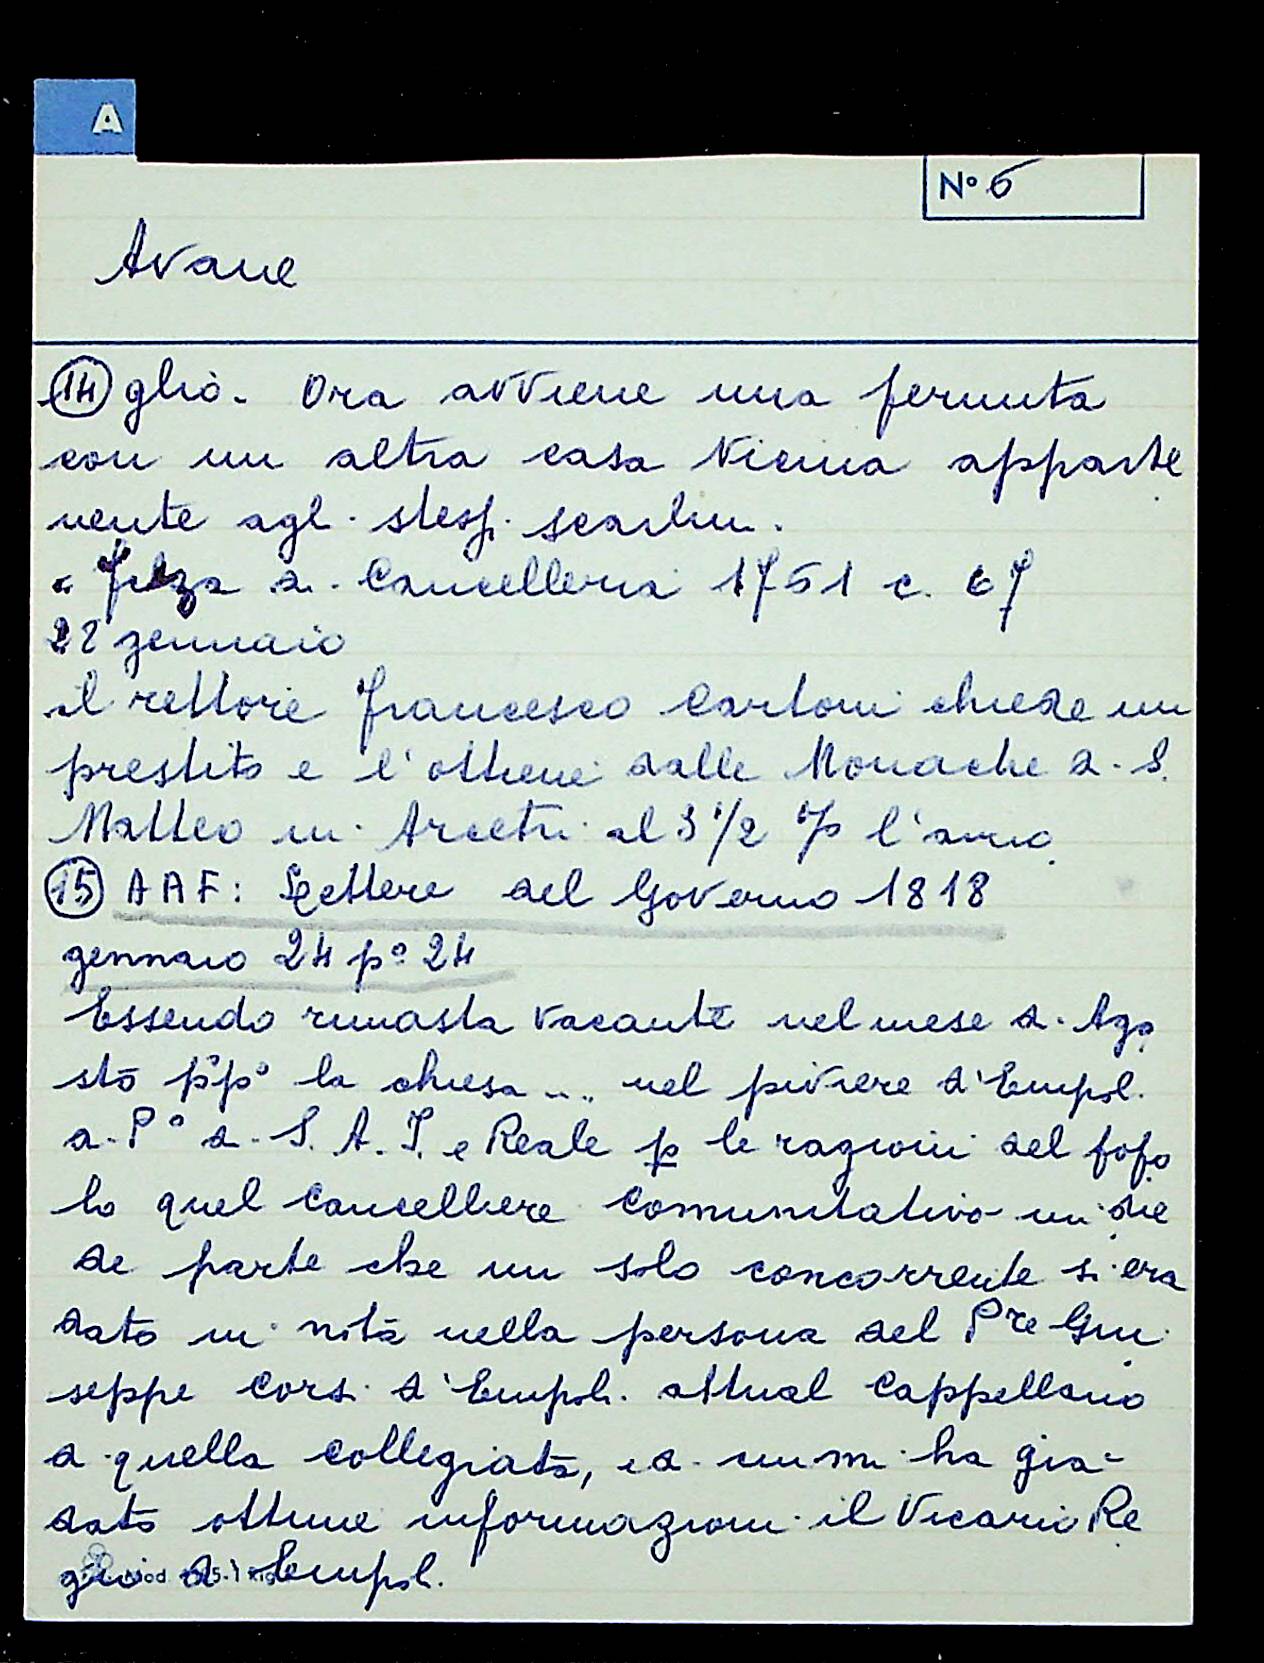 A
N° 6
Avane
14 glio. Ora avviene una permuta
con un altra casa vicina apparte
nente agl. stess. scarlin.
" Filza d. Cancelleria 1751 c. 67
22 gennaio
il rettore Francesco Cartoni chiede un
prestito e l'ottiene dalle Monache d. S.
Matteo in Arcetri al 3 1/2 % l'anno
15 AAF: Lettere del Governo 1818
gennaio 24 p° 24
Essendo rimasta vacante nel mese d. Ago
sto p°p° la chiesa ... nel piviere d'Empol.
d. P° d. S. A. I. e Reale p le ragioni del popo
lo quel Cancelliere Comunitativo mi die
de parte che un solo concorrente si era
dato in nota nella persona del Pre Giu
seppe Corsi d'Empoli. attual Cappellano
d quella collegiata, e d. cui mi ha gia-
dato ottime informazioni il Vicario Re
gio d Empol.